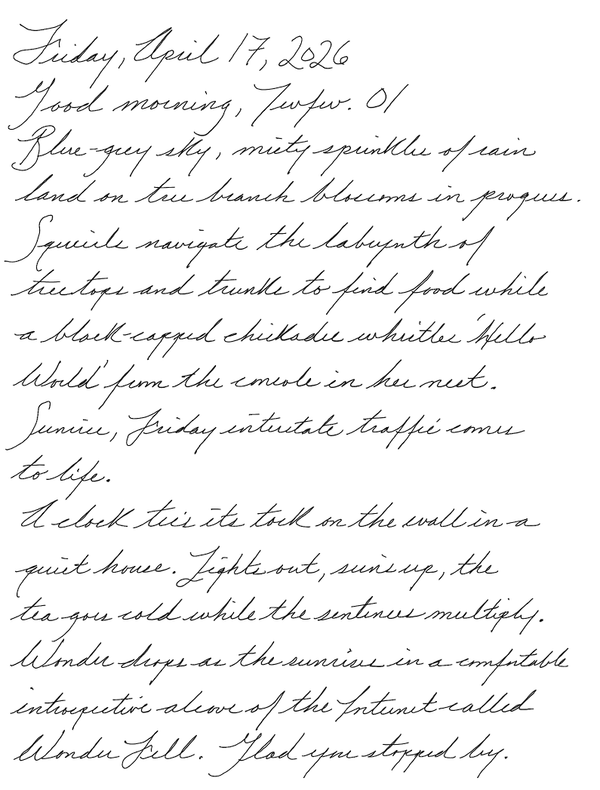 Friday, April 17, 2026
Good morning, Twfwr. 01
Blue-grey sky, misty sprinkles of rain
land on tree branch blossoms in progress.
Squirrels navigate the labyrinth of
treetops and trunks to find food while
a black-capped chickadee whistles 'Hello
World' from the console in her nest.
Sunrise, Friday interstate traffic comes
to life.
A clock tics its tock on the wall in a
quiet house. Lights out, sun's up, the
tea goes cold while the sentences multiply.
Wonder drops as the sunrises in a comfortable
introspective alcove of the Internet called
Wonder Fell. Glad you stopped by.